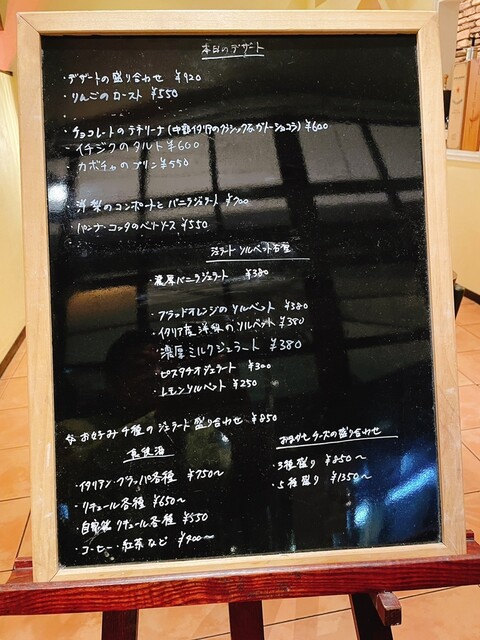 本日のデザート
・デザートの盛り合わせ ¥920
・りんごのロースト ¥550
・チョコレートのテリーナ(中部イタリアのクラシックなガトーショコラ) ¥600
・イチジクのタルト ¥600
・カボチャのプリン ¥550
・洋梨のコンポートと バニラジェラート ¥700
・パンナ・コッタのベリーソース ¥550
ジェラート ソルベット各種
・濃厚バニラジェラート ¥380
・ブラッドオレンジのソルベット ¥380
・イタリア産洋梨のソルベット ¥380
・濃厚ミルクジェラート ¥380
・ピスタチオジェラート ¥300
・レモンソルベット ¥250
☆ お好み4種のジェラート盛り合わせ ¥850
食後酒
・イタリアン・グラッパ各種 ¥750〜
・リキュール各種 ¥650〜
・自家製リキュール各種 ¥550
・コーヒー・紅茶など ¥400〜
おまかせチーズの盛り合わせ
・3種盛り ¥850〜
・5種盛り ¥1350〜